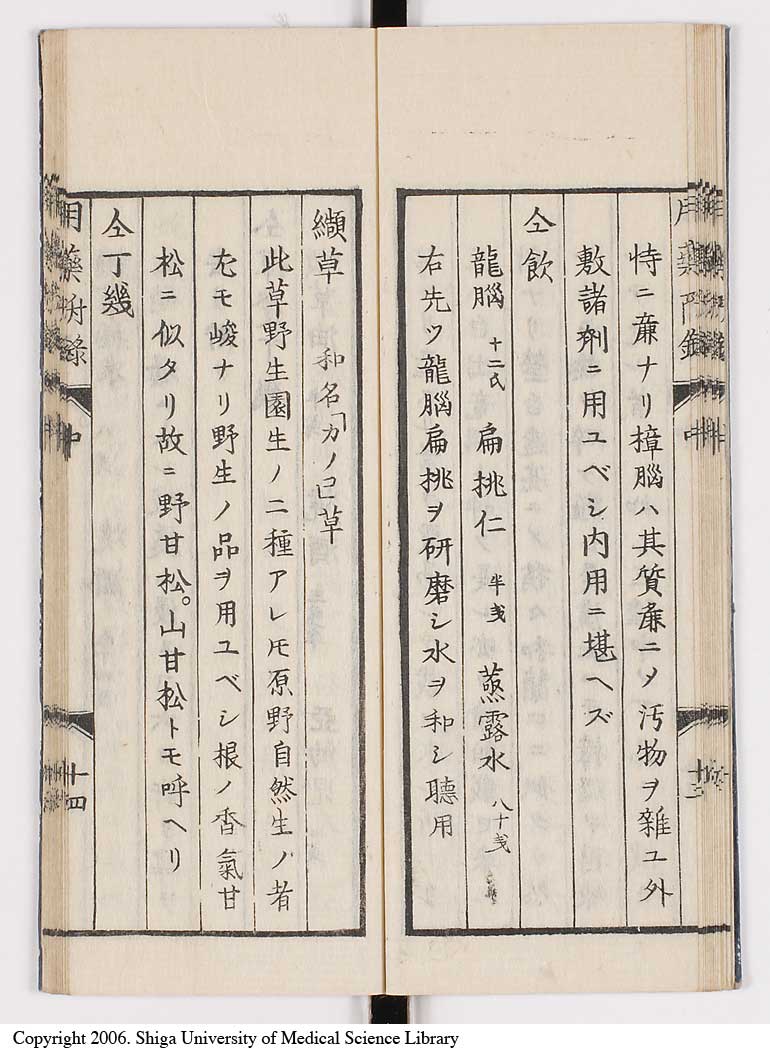 恃ニ㢘ナリ樟腦ハ其質㢘ニメ汚物ヲ雜ユ外
敷諸劑ニ用ユベシ內用ニ堪ヘズ
仝飲
龍腦 十二氏 扁挑仁 半戔 蒸露水 八十戔
右先ツ龍腦扁挑ヲ研磨シ水ヲ和シ聽用
纈草 和名「カノコ草
此草野生園生ノ二種アレ𪜈原野自然生ノ者
尤モ峻ナリ野生ノ品ヲ用ユベシ根ノ香氣甘
松ニ似タリ故ニ野甘松。山甘松トモ呼ヘリ
仝丁幾
用藥附錄 中 十四
Copyright 2006. Shiga University of Medical Science Library